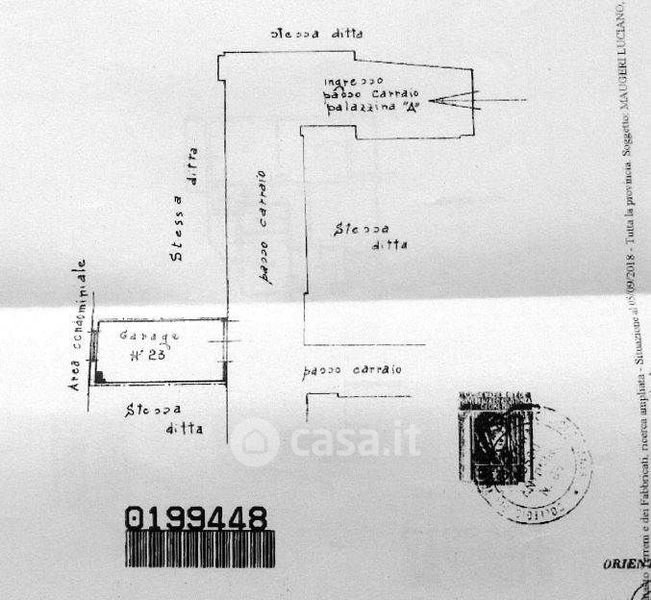 stessa ditta
ingresso
passo carraio
palazzina "A"
Stessa ditta
passo carraio
Stessa
ditta
Area condominiale
Garage
N° 23
passo carraio
Stessa
ditta
casa.it
0199448
ORIENT
Terreni e dei Fabbricati, ricerca ampliata - Situazione al 05/09/2018 - Tutta la provincia Soggetto: MAUGERI LUCIANO,